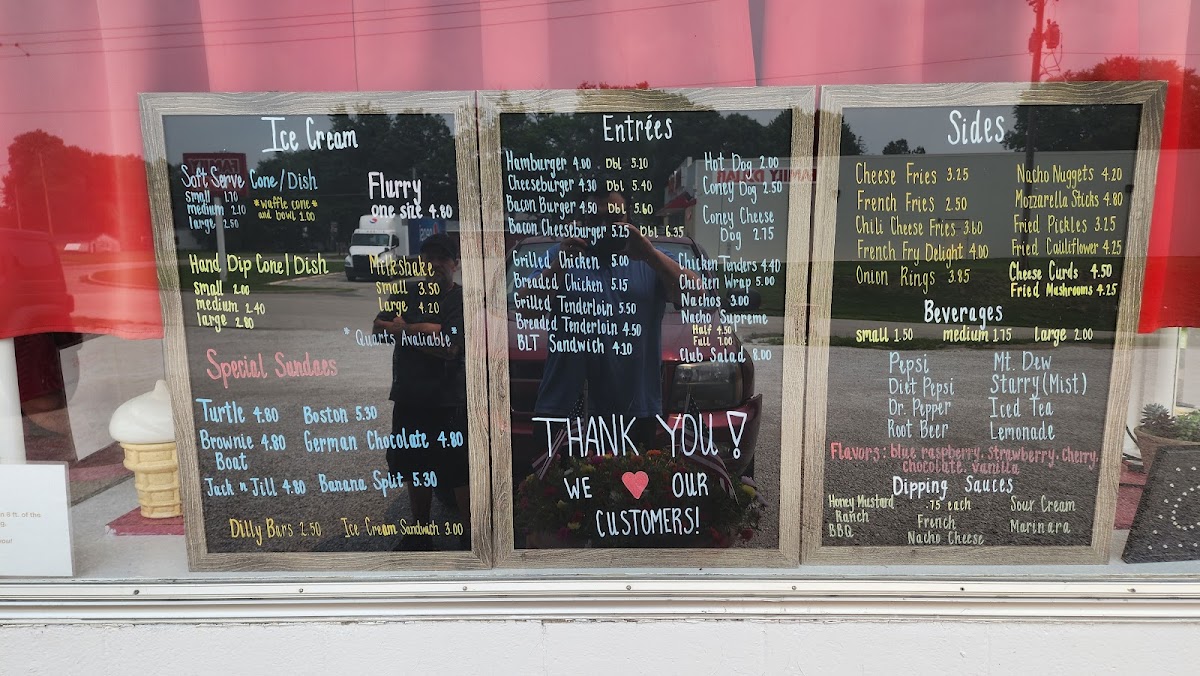 Ice Cream
Soft Serve Cone/Dish
small 1.70
medium 2.10
large 2.50
*waffle cone*
and bowl 2.00
Flurry
one size 4.80
Hand Dip Cone/Dish
small 2.00
medium 2.40
large 2.80
Milkshake
small 3.50
large 4.20
*Quarts Avaliable*
Special Sundaes
Turtle 4.80
Boston 5.30
Brownie 4.80
Boat
German Chocolate 4.80
Jack n Jill 4.80
Banana Split 5.30
Dilly Bars 2.50
Ice Cream Sandwich 3.00
Entrées
Hamburger 4.00 Dbl 5.10
Cheeseburger 4.30 Dbl 5.40
Bacon Burger 4.50 Dbl 5.60
Bacon Cheeseburger 5.15 Dbl 6.35
Grilled Chicken 5.00
Breaded Chicken 5.15
Grilled Tenderloin 5.50
Breaded Tenderloin 4.50
BLT Sandwich 4.10
Hot Dog 2.00
Coney Dog 2.50
Coney Cheese
Dog 2.75
Chicken Tenders 4.40
Chicken Wrap 5.00
Nachos 3.00
Nacho Supreme
Half 4.50
Full 7.00
Club Salad 8.00
THANK YOU!
WE OUR
CUSTOMERS!
Sides
Cheese Fries 3.25
French Fries 2.50
Chili Cheese Fries 3.60
French Fry Delight 4.00
Onion Rings 3.85
Nacho Nuggets 4.20
Mozzarella Sticks 4.80
Fried Pickles 3.25
Fried Cauliflower 4.25
Cheese Curds 4.50
Fried Mushrooms 4.25
Beverages
small 1.50 medium 1.75 large 2.00
Pepsi
Diet Pepsi
Dr. Pepper
Root Beer
Mt. Dew
Starry (Mist)
Iced Tea
Lemonade
Flavors: blue raspberry, strawberry, cherry,
chocolate, vanilla
Dipping Sauces
.75 each
Honey Mustard
Ranch
BBQ
French
Nacho Cheese
Sour Cream
Marinara